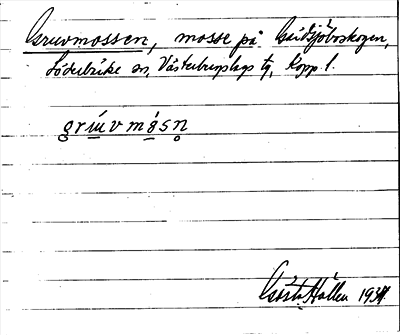 Gruvmossen, mosse på Gäddsjöboskogen,
Söderbärke sn, Västerbergslags tg, Kopp. l.
grùvmǻsn̥
Gösta Hallen 1934.